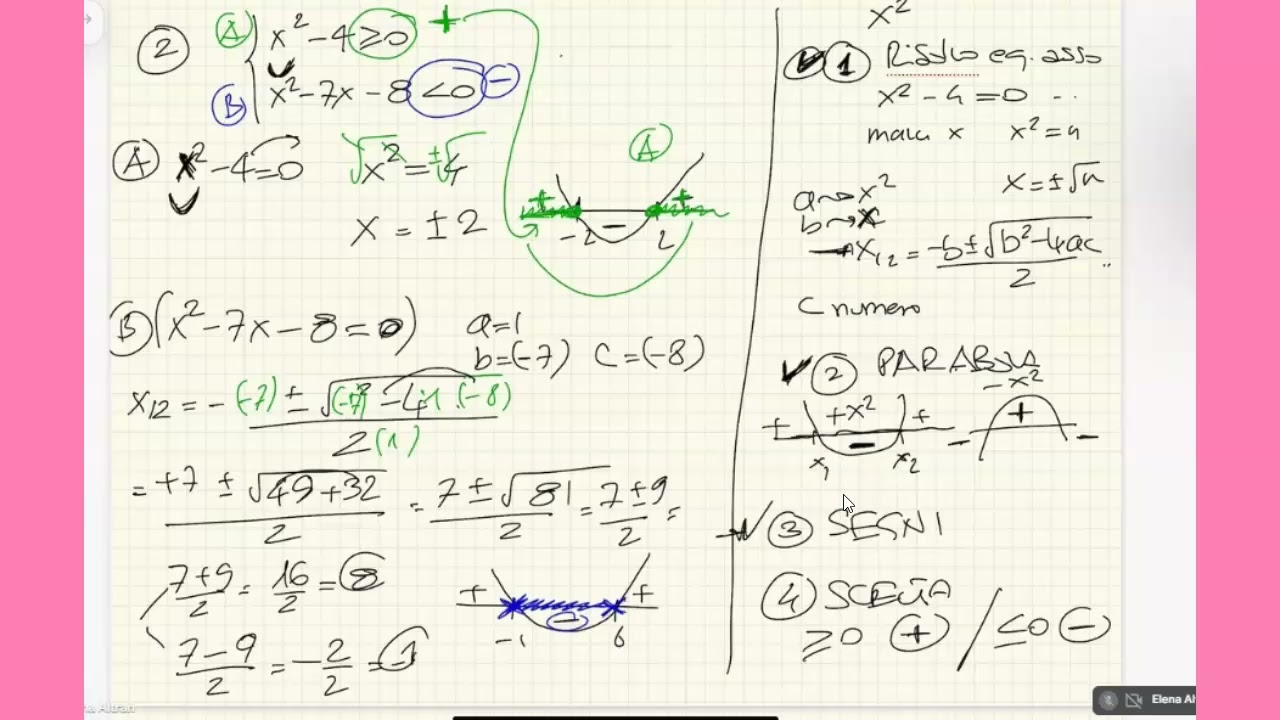 ②
Ⓐ x² - 4 ≥ 0 +
Ⓑ x² - 7x - 8 < 0 -
Ⓐ x² - 4 = 0 √x² = ±√4
x = ±2
Ⓐ
+ - +
-2 2
Ⓑ (x² - 7x - 8 = 0)
a = 1
b = (-7) c = (-8)
x₁₂ = -(-7) ± √(-7)² - 4·1·(-8)
2(1)
= +7 ± √49 + 32 = 7 ± √81 = 7 ± 9 =
2 2 2
7+9 = 16 = 8
2 2
7-9 = -2 = -1
2 2
+ - +
-1 6
x²
① Risolvo eq. asso
x² - 4 = 0 ..
manca x x² = 4
x = ±√4
a → x²
b → x
→ x₁₂ = -b ± √b² - 4ac
2 ..
c numero
② PARABOLA
-x²
+ +x² + - + -
-
x₁ x₂
③ SEGNI
④ SCELTA
≥0 ⊕ / ≤0 ⊖
Elena Al
na Altran